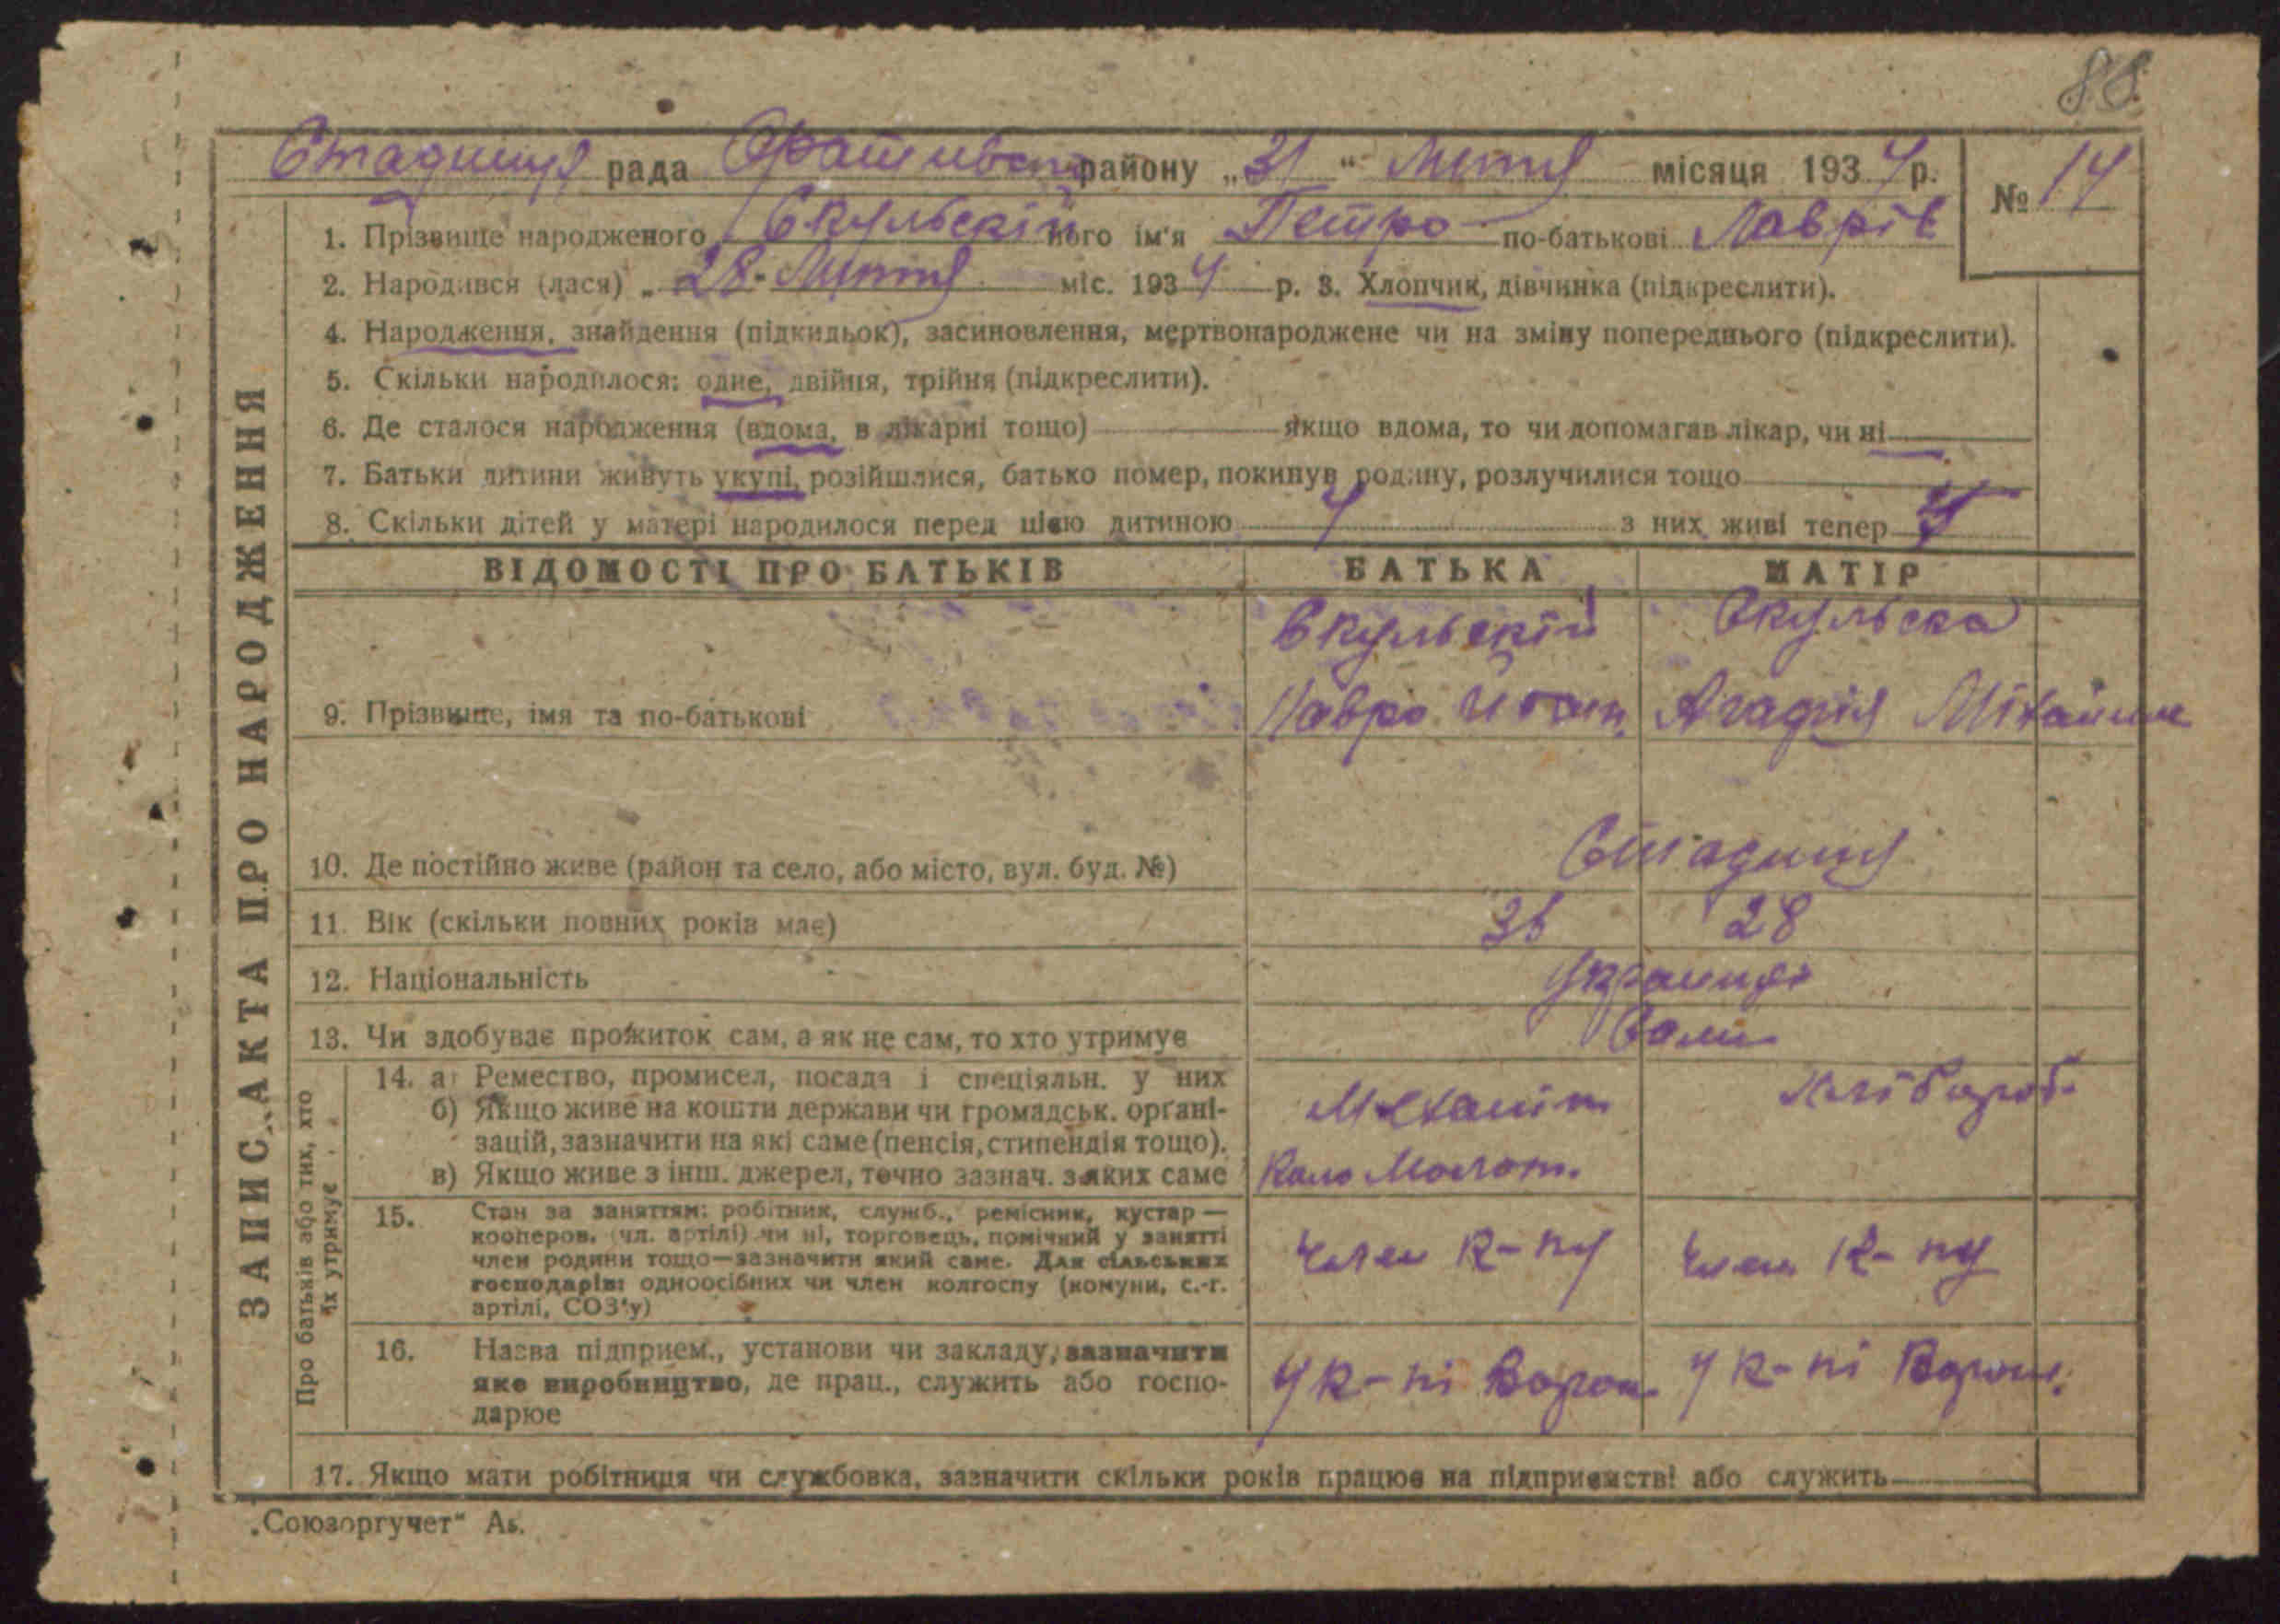 88
Стадниця рада район у „31“ Липня місяця 1934 р.
№ 14
1. Прізвище народженого Скульскій його ім'я Петро по-батькові Лаврів
2. Народився (лася) „28 - Липня міс. 1934 р. 3. Хлопчик, дівчинка (підкреслити).
4. Народження, знайдення (підкидьок), засиновлення, мертвонароджене чи на зміну попереднього (підкреслити).
5. Скільки народилося: одне, двійня, трійня (підкреслити).
6. Де сталося народження (вдома, в лікарні тощо) якщо вдома, то чи допомагав лікар, чи ні
7. Батьки дитини живуть укупі, розійшлися, батько помер, покинув родину, розлучилися тощо
8. Скільки дітей у матері народилося перед цією дитиною 4 з них живі тепер
ЗАПИС АКТА ПРО НАРОДЖЕННЯ
ВІДОМОСТІ ПРО БАТЬКІВ БАТЬКА МАТІР
Скульскій Скульска
9. Прізвище, імя та по-батькові Лавро Агафія
10. Де постійно живе (район та село, або місто, вул. буд. №) Стадниця
11. Вік (скільки повних років має) 28
12. Національність Українці
13. Чи здобуває прожиток сам, а як не сам, то хто утримує Сами
Про батьків або тих, хто
їх утримує
14. а) Ремество, промисел, посада і спеціяльн. у них
б) Якщо живе на кошти держави чи громадськ. орґані-
зацій, зазначити на які саме (пенсія, стипендія тощо).
в) Якщо живе з інш. джерел, точно зазнач. з яких саме
Механік Хлібороб.
Коло Молот.
15. Стан за заняттям: робітник, служб., ремісник, кустар —
кооперов. (чл. артілі) чи ні, торговець, помічний у занятті
член родини тощо—зазначити який саме. Для сільських
господарів: одноосібних чи член колгоспу (комуни, с.-г.
артілі, СОЗ'у)
Член к-пу Член к-пу
16. Назва підприєм., установи чи закладу, зазначити
яке виробництво, де прац., служить або госпо-
дарює
У к-пі Ворош. У к-пі Ворош.
17. Якщо мати робітниця чи службовка, зазначити скільки років працює на підприємстві або служить
„Союзоргучет“